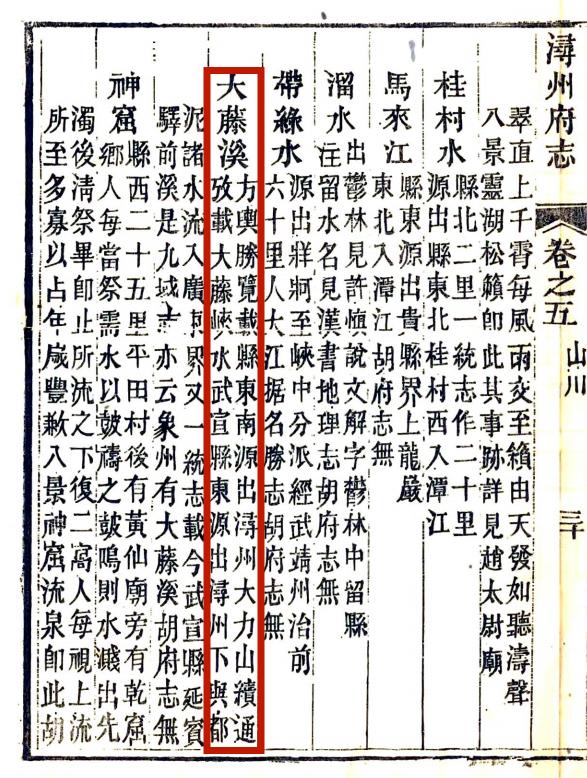 潯州府志
卷之五
山川
三十
翠直上千霄每風雨交至籟由天發如聽濤聲
八景靈湖松籟卽此其事跡詳見趙太尉廟
桂村水
縣北二里一統志作二十里
源出縣東北桂村西入潭江
馬來江
縣東源出貴縣界上龍巖
東北入潭江胡府志無
溜水
出鬱林見許愼說文解字鬱林中留縣
注留水名見漢書地理志胡府志無
帶綠水
源出牂牁至峽中分派經武靖州治前
六十里人大江据名勝志胡府志無
大藤溪
方輿勝覽載縣東南源出潯州大力山續通
攷載大藤峽水武宣縣東源出潯州下與都
泥諸水流入廣界又一統志載今武宣縣延賓
驛前溪是九域志亦云象州有大藤溪胡府志無
神窟
縣西二十五里平田村後有黃仙廟旁有乾窟
鄉人每當祭需水以鼓禱之鼓鳴則水濺出先
濁後淸祭畢卽止所流之下復二窩人每視上流
所至多寡以占年歲豐歉八景神窟流泉卽此胡